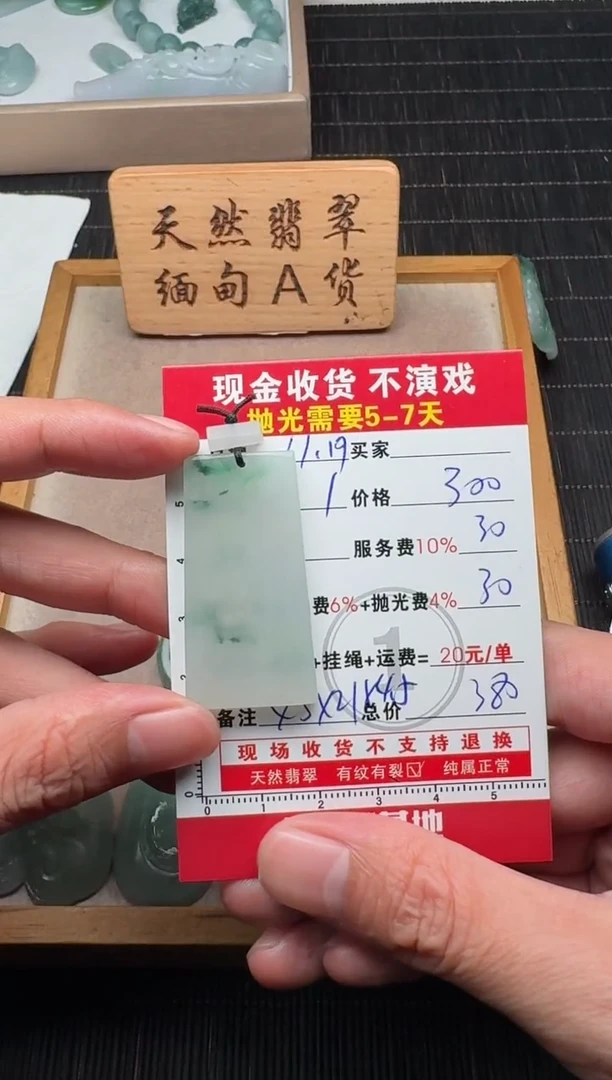 天然翡翠
缅甸A货
现金收货 不演戏
抛光需要5-7天
11.19 买家
1 价格 300
服务费10% 30
费6%+抛光费4% 30
+挂绳+运费= 20元/单
备注 45X21X45 总价 380
现场收货不支持退换
天然翡翠 有纹有裂☑ 纯属正常
5
4
3
2
0
0 1 2 3 4 5
基地